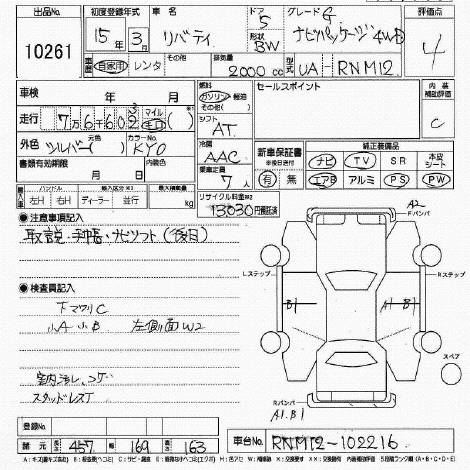 出品No. 初度登録年式 車名 ドア グレード 評価点
10261 15年 3月 リバティ 5 G
形状 BW ナビパッケージ 4WD 4
車歴 自家用 レンタ その他 排気量 2000 cc 型式 UA RNM12
車検 年 月 燃料 ガソリン 軽油 その他( ) セールスポイント 内装補助評価
走行 7万6千602 マイル キロ ( ) シフト AT C
外色 元色 カラーNo. 冷房
シルバー( ) KY0 AAC 新車保証書 純正装備品
書類有効期限 内装色 乗車定員 ※後日送付 ナビ TV SR 本皮シート
月 日 7人 有 無 エアB アルミ PS PW
輸入車 ハンドル 輸入区分 最大積載量 リサイクル料金
左H 右H ディーラー 並行 kg 13030円預託済
●注意事項記入 A2 Fバンパ
取説・手帳・ナビソフト(後日)
Lステップ Rステップ
●検査員記入
下マワリC B1 A1 B1
小A小B 左側面W2
スペア
スタッドレスT Rバンパ
A1.B1
登録No.
諸元 長さ 457 幅 169 高さ 163 車台No. RNM12-102216